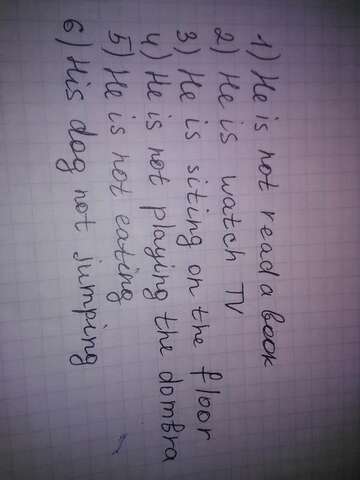 1) He is not read a book
2) He is watch TV
3) He is siting on the floor
4) He is not playing the dombra
5) He is not eating
6) His dog not jumping